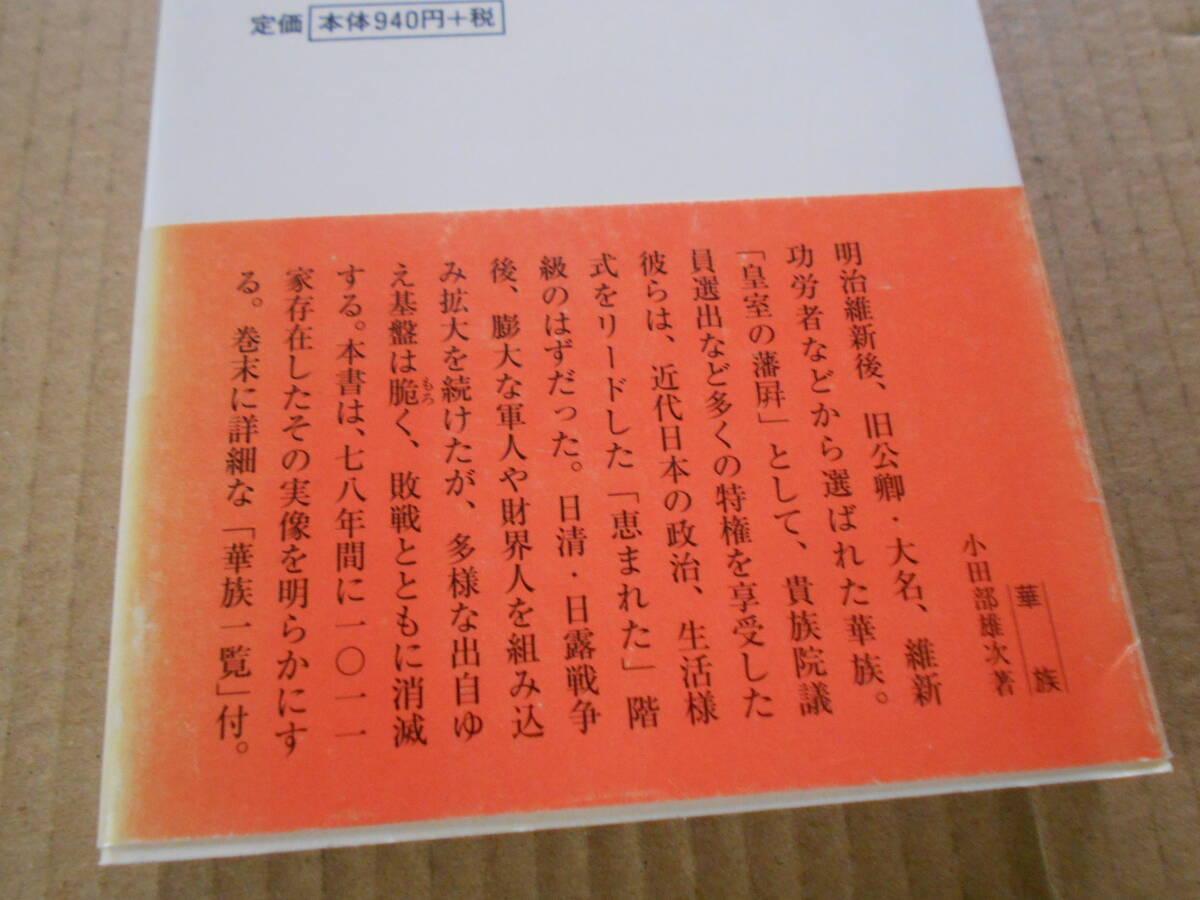 定価 本体940円+税
華族
小田部雄次著
明治維新後、旧公卿・大名、維新
功労者などから選ばれた華族。
「皇室の藩屛」として、貴族院議
員選出など多くの特権を享受した
彼らは、近代日本の政治、生活様
式をリードした「恵まれた」階
級のはずだった。日清・日露戦争
後、膨大な軍人や財界人を組み込
み拡大を続けたが、多様な出自ゆ
え基盤は脆もろく、敗戦とともに消滅
する。本書は、七八年間に一〇一一
家存在したその実像を明らかにす
る。巻末に詳細な「華族一覧」付。